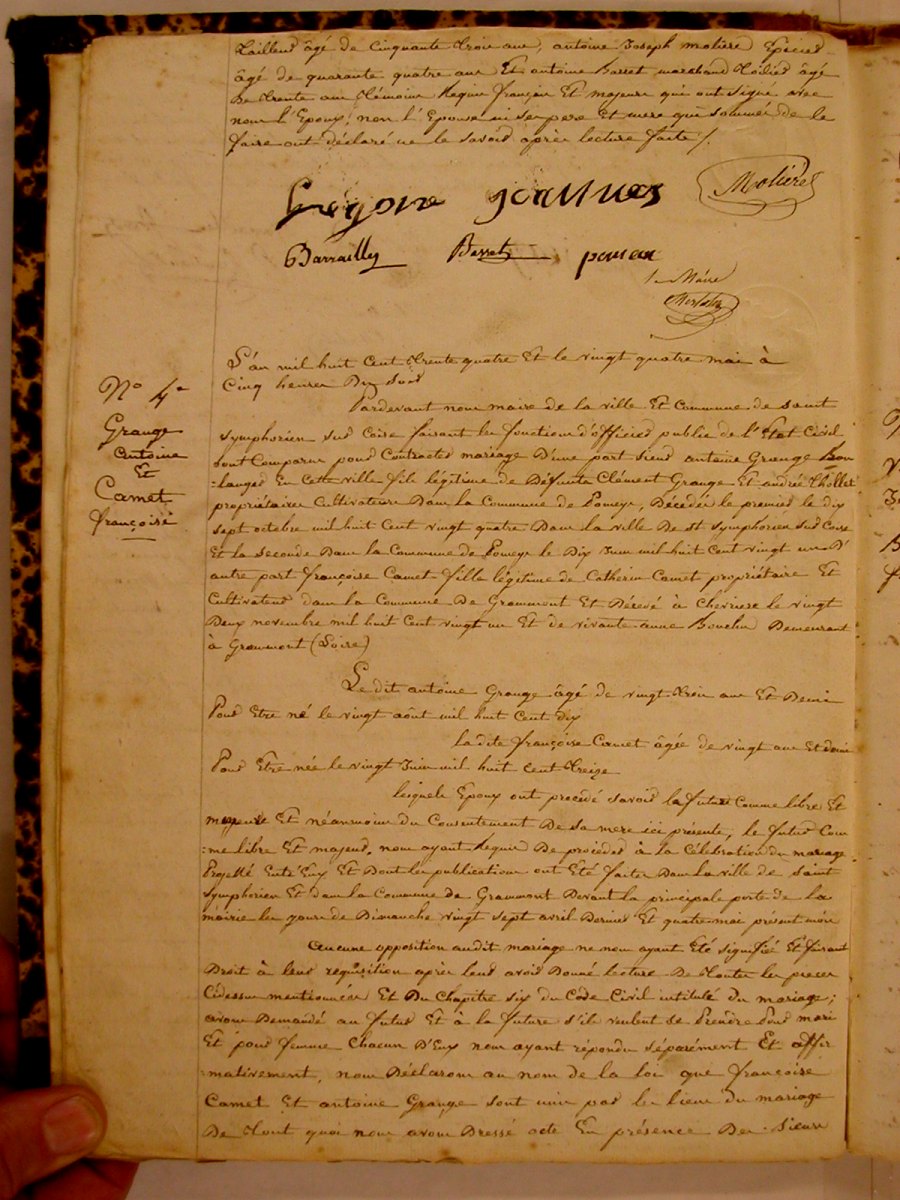 tailleur âgé de cinquante trois ans, antoine Joseph molière Epicier
âgé de quarante quatre ans Et antoine Basset marchand toilier âgé
De trente ans témoins Requis français Et majeurs qui ont signé avec
nous l'Epoux, non l'Epouse ni ses pere Et mere qui sommés de le
faire ont déclaré ne le savoir après lecture faite /.
grégoire
Molière
Barrailly Basset
le Maire
L'an mil huit Cent trente quatre Et le vingt quatre mai à
Cinq heures Du Soir
Pardevant nous maire de la ville Et Commune de saint
N° 4
symphorien sur Coise faisant les fonctions d'officier public de l'Etat Civil
Grange
antoine
Et
Camet
françoise
sont Comparus pour Contracter mariage D'une part sieur antoine Grange Bou
=langer En cette ville fils légitime de Défunts Clément Grange Et andrée Thollet
propriétaires Cultivateurs Dans la Commune de Pomeys, Décédés le premier le dix
sept octobre mil huit Cent vingt quatre Dans la ville De st Symphorien sur Coise
Et la seconde Dans la Commune de Pomeys le Dix Juin mil huit Cent vingt un D'
autre part françoise Camet fille légitime de Catherin Camet propriétaire Et
Cultivateur dans la Commune De Grammont Et Décédé à Chevrieres le vingt
Deux novembre mil huit Cent vingt un Et de vivante anne Demeurant
à Grammont (Loire)
Le dit antoine Grange âgé de vingt trois ans Et Demi
Pour Etre né le vingt août mil huit Cent dix
la dite françoise Camet âgée de vingt ans Et demi
Pour Etre née le vingt Juin mil huit Cent treize
lesquels Epoux ont procédé savoir la future Comme libre Et
majeure Et néanmoins du Consentement De sa mere ici présente, le futur Com
=me libre Et majeur, nous ayant Requis De procéder à la Célébration du mariage
Projetté Entr'Eux Et Dont les publications ont Eté faites Dans la ville de saint
symphorien Et dans la Commune de Grammont Devant la principale porte de la
mairie les jours de Dimanche vingt sept avril Dernier Et quatre mai présent mois
Aucune opposition audit mariage ne nous ayant Eté signifiée Et faisant
Droit à leur requisition après leur avoir Donné lecture De toutes les pieces
Cidessus mentionnées Et Du Chapitre six du Code Civil intitulé du mariage;
avons Demandé au futur Et à la future s'ils veulent se Prendre Pour mari
Et pour femme Chacun D'Eux nous ayant répondu séparément Et affir
=mativement, nous Déclarons au nom de la loi que françoise
Camet Et antoine Grange sont unis par les liens du mariage
De tout quoi nous avons Dressé acte En présence Des Sieurs